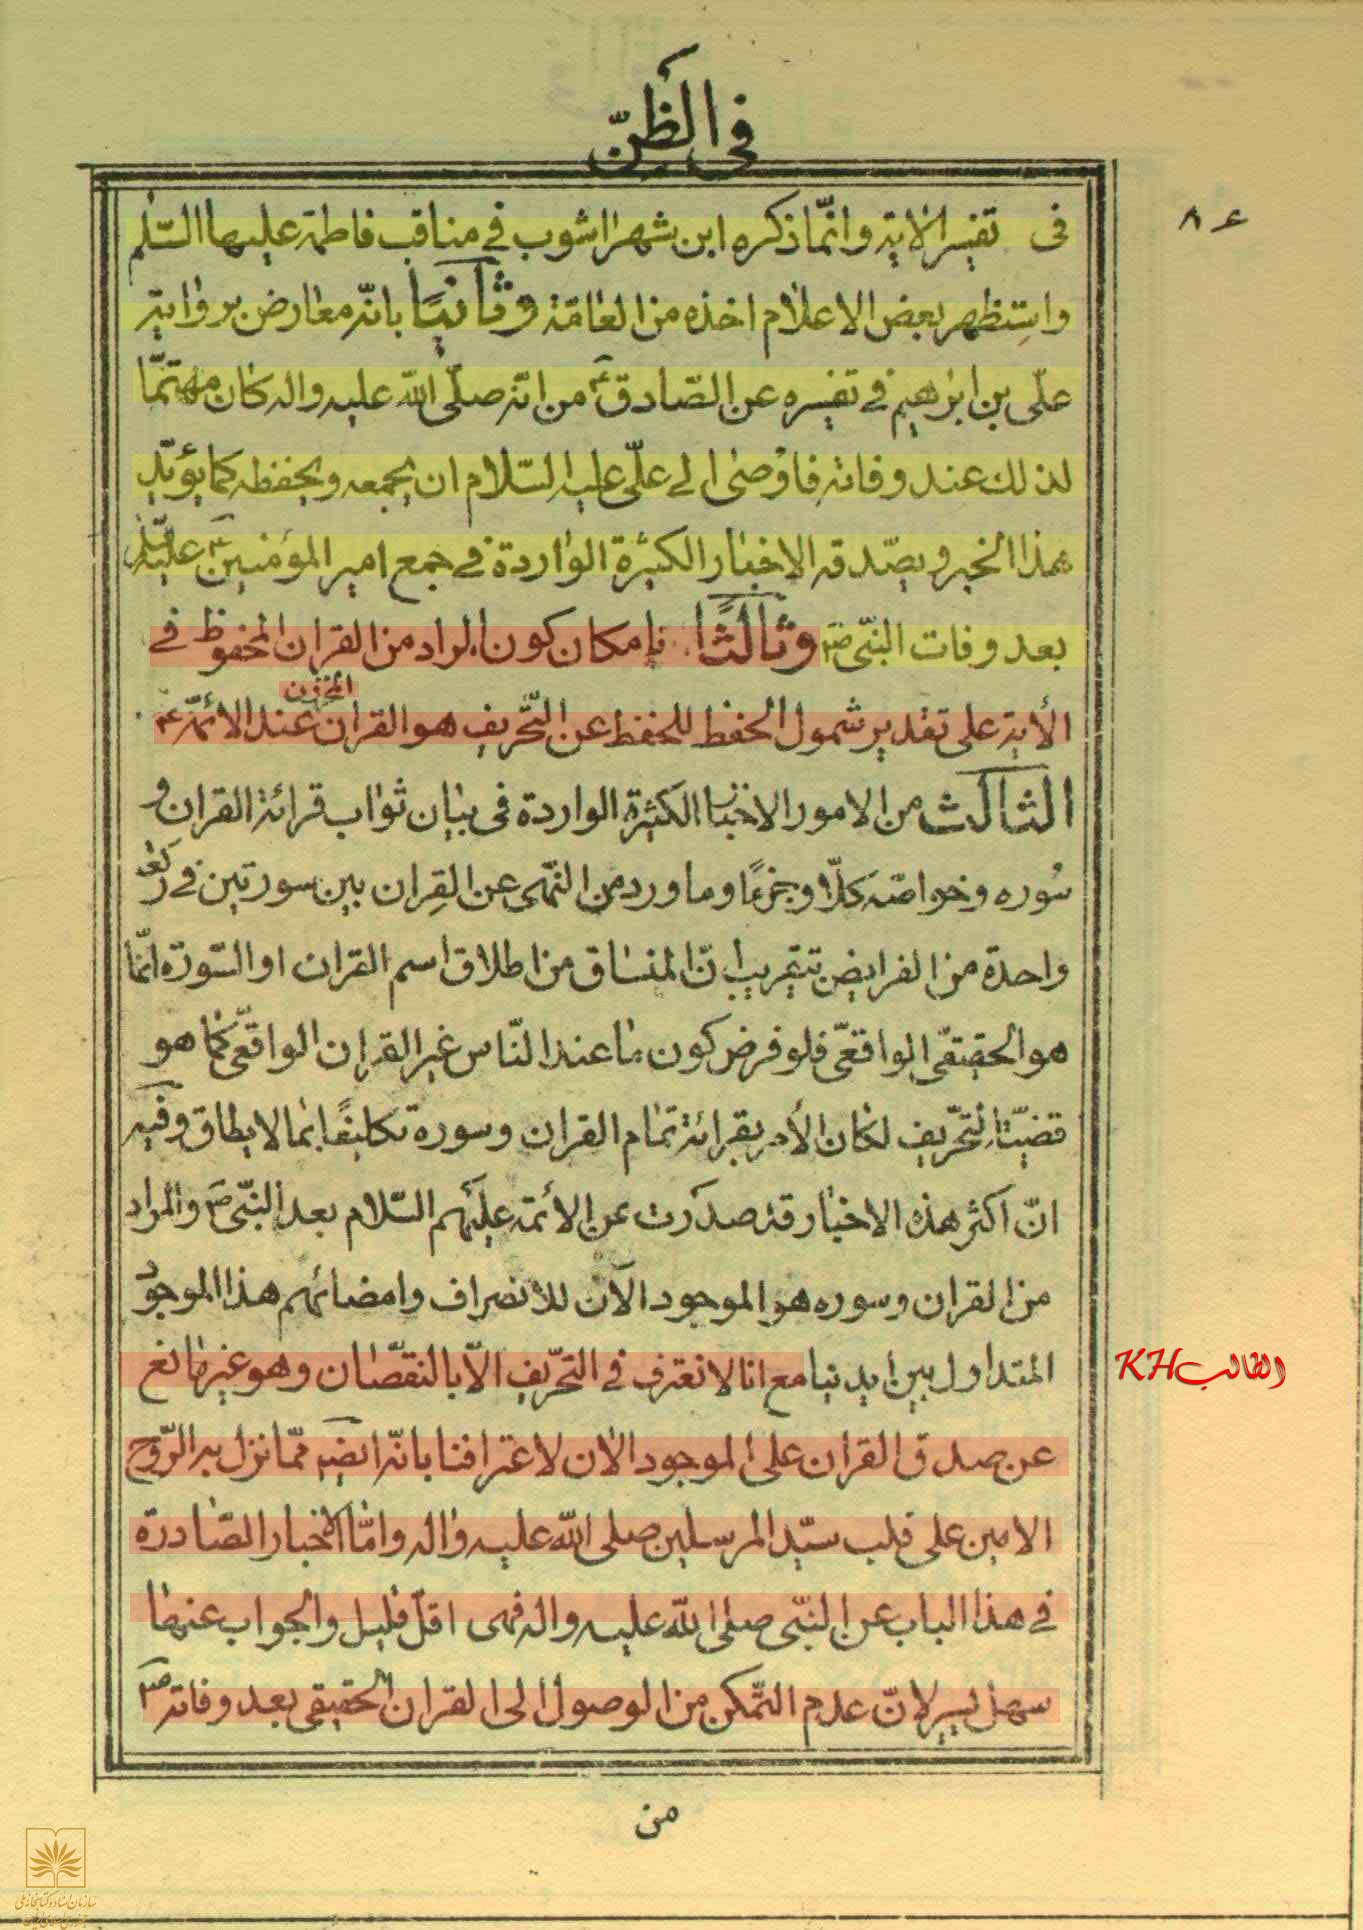 في الظنّ
٨٤
في تفسير الاية وانّما ذكره ابن شهراشوب في مناقب فاطمة عليها السّلم
واستظهر بعض الاعلام اخذه من العامّة وثانيًا بانّه معارض برواية
علّى بن ابرهيم في تفسيره عن الصّادقؑ من انّه صلّى اللّه عليه واله كان مهتمّا
لذلك عند وفاته فاوصى الى علّى عليه السّلام ان يجمعه ويحفظه كما يؤيّد
هذا الخبر ويصّدقه الاخبار الكثيرة الواردة في جمع امير المؤمنينؑ
بعد وفات النبّىؐ وثالثًا بإمكان كون المراد من القران المحفوظ في
الأية على تقدير شمول الحفظ للحفظ عن التّحريف هو القران المخزون عند الائمّةؑ
الثالث من الامور الاخبار الكثيرة الواردة في بيان ثواب قرائة القران و
سُوره وخواصّه كلّا وجزءًا وما ورد من النّهى عن القِران بين سورتين في ركعة
واحدة من الفرايض بتقريب انّ المنساق من اطلاق اسم القران او السّورة انّما
هو الحقيقّى الواقعّى فلو فرض كون ما عند النّاس غير القران الواقعّى كما هو
قضيّة التّحريف لكان الأمر بقرائة تمام القران وسورة تكليفًا بما لا يطاق وفيه
انّ اكثر هذه الاخبار قد صدرت عن الأئمّة عليهم السّلام بعد النبّىؐ والمراد
من القران وسوره هو الموجود الآن للانصراف وامضائهم هذا الموجود
المتداول بين ايدينا مع انا لا نعترف في التحّريف الّا بالنقصّان وهو غير مانع
عن صدق القران على الموجود الان لاعترافنا بانّه ايضا ممّا نزل به الرّوح
الامين على قلب سيّد المرسلين صلى اللّه عليه واله وامّا الاخبار الصّادرة
في هذا الباب عن النبّى صلى اللّه عليه واله فهى اقلّ قليل والجواب عنها
سهل يسير لانّ عدم التمّكن من الوصول الى القران الحقيقى بعد وفاتهؐ
من
الطالب KH
سازمان اسناد و کتابخانه ملی
جمهوری اسلامی ایران